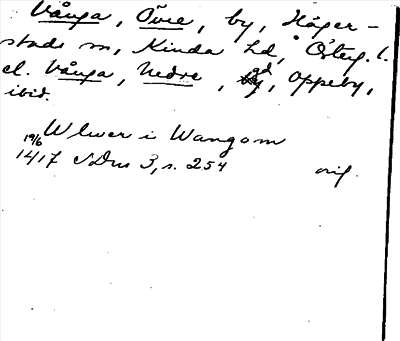 Vånga, Övre, by, Häger-
stads sn, Kinda hd, Österg. l.
el. Vånga, Nedre, gd, Oppeby,
ibid.
Wlwer i Wangom
19/6
1417 SDns 3, s. 254 orig.